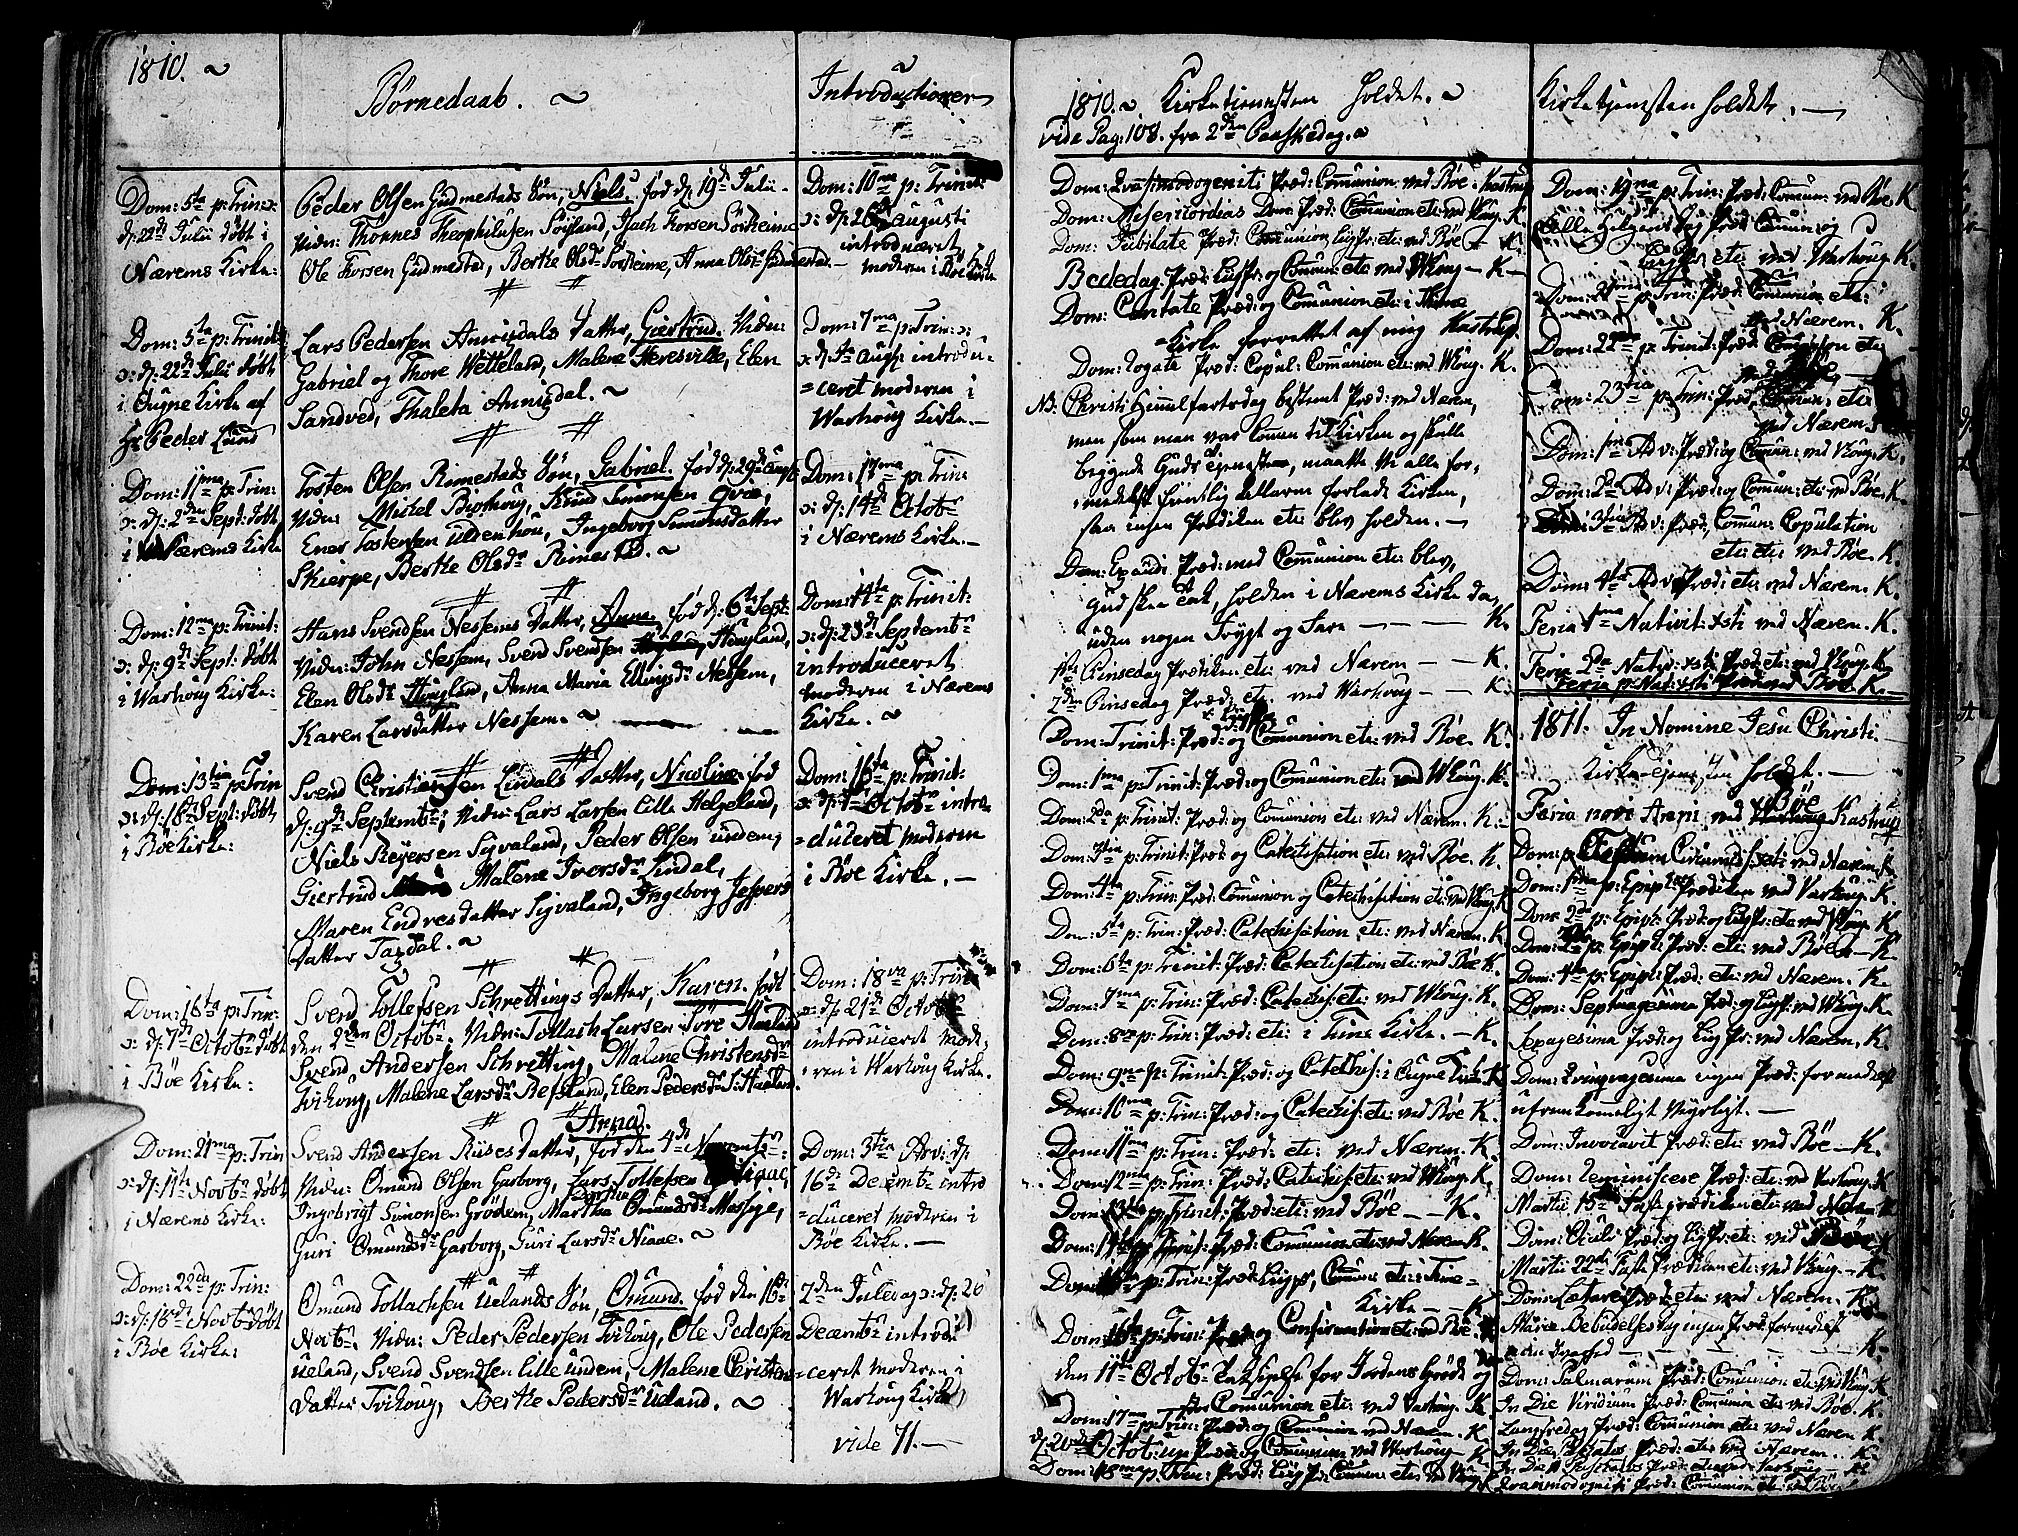 1810. ~
Børnedaab. ~
Introductioner
Dom: 5ta p: Trin: ɔ:
d: 22de Julii døbt i
Nærems Kirke:
Peder Olsen Gudmestads Søn, Niels, fød d: 19de Julii
Vidn: Thonnes Theophilusen Søyland, Isach Torsen Sørheime
Ole Torsen Gudmestad, Berthe Olsdr Sørheime, Anna Olsdr Gudmestad
Dom: 10ma p: Trinit:
ɔ: d: 26de Augusti
introduceret
moderen i Bøe Kirke
Dom: 5ta p: Trinit:
ɔ: d: 22de Julii døbt
i Ougne Kirke af
Hr Peder Lund
Lars Pedersen Annisdals Datter, Giertrud. Vidn:
Gabriel og Thore Wetteland, Malene Heresville, Elen
Sandved, Thaleta Annisdal. ~
Dom: 7ma p: Trin: ɔ:
ɔ: d: 5te Aug: introdu-
=ceret moderen i
Warhoug Kirke.
Dom: 11ma p: Trin:
ɔ: d: 2den Sept: døbt
i Nærems Kirke
Tosten Olsen Rimestads Søn, Gabriel. fød d: 29de Aug:
Vidn: Mickel Bushoug, Knud Simonsen Qvie,
Ener Tostensen Uldenhou, Ingeborg Simonsdatter
Skierpe, Berthe Olsdr Rimestad. ~
Dom: 17ma p: Trin:
ɔ: d: 14de Octobr
i Nærems Kirke.
Dom: 12ma p: Trinit:
ɔ: d: 9de Sept: døbt
i Warhoug Kirke:
Hans Svendsen Nessems Datter, Anna, fød d: 6te Sept:
Vidn: John Nessem, Svend Svendsen Houyland,
Elen Olsdr Houyland, Anna Maria Ellingsdr Nessem,
Karen Larsdatter Nessem. ~
Dom: 14ta p: Trinit:
ɔ: d: 23de Septembr
introduceret
moderen i Nærems
Kirke. ~
Dom: 13tia p: Trin
ɔ: d: 16de Sept: døbt
i Bøe Kirke:
Svend Christiansen Lindals Datter, Nicolina fød
d: 9de Septembr; Vidn: Lars Larsen Lille Helgeland,
Niels Reyersen Sigvaland, Peder Olsen Undem,
Giertrud Malene Iversdr Lindal,
Maren Endresdatter Sigvaland, Ingeborg Jespers
Datter Taxdal. ~
Dom: 16ta p: Trinit:
ɔ: d: 7de Octobr intro
=duceret moderen
i Bøe Kirke. —
Dom: 16ta p: Trin:
ɔ: d: 7de Octobr døbt
i Bøe Kirke:
Svend Tollefsen Schrettings Datter, Karen. født
den 2den Octobr. Vidn: Tollach Larsen Søre Haaland
Svend Andersen Schretting, Malene Christensdr
Tvihoug, Malene Larsdr Refsland, Elen Pedersdr S: Haaland.
Dom: 18va p: Trin:
ɔ: d: 21de Octobr
introduceret mode,
=ren i Warhoug Kirke.
Dom: 21ma p: Trin
ɔ: d: 11te Novbr døbt
i Nærems Kirke:
Anna.
Svend Andersen Riises Datter, fød den 4de Novembr:
Vidn: Omund Olsen Garborg, Lars Tollefsen Niaae,
Ingebrigt Simonsen Grødem, Martha Omundsdr Massige,
Guri Omundsdr Garborg, Guri Larsdr Niaae. ~
Dom: 3tia Adv: d:
16de Decembr intro
=duceret moderen i
Bøe Kirke. —
Dom: 22da p: Trin:
ɔ: d: 18de Novbr døbt
i Bøe Kirke:
Omund Tollachsen Uelands Søn, Omund. fød den 16de
Novbr. Vidn: Peder Pedersen Tvihoug, Ole Pedersen
Ueland, Svend Svendsen Lille Undem, Malene Christens
Datter Tvihoug, Berthe Pedersdr Ueland. ~
2den Juledag ɔ: d: 26
Decembr introdu
=ceret moderen i
Warhoug Kirke
vide 71. —
1810. ~ Kirketienesten holdet. ~
vide Pag: 108. fra 2den Paaskedag. ~
Dom: Qvasimodogeniti Præd: Communion ved Bøe: Kastrup
Dom: Misericordias Dom: Præd: Communion etc: ved Whoug. K.
Dom: Jubilate Præd: Communion etc: ved Bøe — K.
Bededag Præd: og Commun: etc ved Whoug — K —
Dom: Cantate Præd: og Communion etc: i Thime
=Kirke forrettet af mig Kastrup.
Dom: Rogate Præd: Copul: Communion etc: ved Whoug. K.
NB. Christi Himmelfartsdag bestemt Præd: ved Nærem,
men som man var kommen til Kirken og skulle
begynde Guds tjenesten, maatte vi alle for,
=medelst fiendtlig allarm forlade Kirken,
saa ingen Prædiken etc: blev holden. —
Dom: Exaudi Præd: med Communion etc: blev,
Gud skee Tak, holden i Nærems Kirke da,
uden nogen Frygt og Fare — — — K.
1ste Pinsedag Prædiken etc: ved Nærem — — K.
2den Pinsedag Præd: etc ved Warhoug — K.
Dom: Trinit: Præd: og Communion etc: ved Bøe. K.
Dom: 1ma p: Trinit: Præd: og Communion etc: ved Whoug. K.
Dom: 2da p: Trinit: Præd: og Communion etc: ved Nærem. K.
Dom: 3tia p: Trinit: Præd: og Catechisation etc: ved Bøe. K.
Dom: 4ta p: Trin: Præd: Communion og Catechisation etc: ved Whoug. K
Dom: 5ta p: Trin: Præd: Catechisation etc: ved Nærem. K.
Dom: 6ta p: Trinit: Præd: Catechisation etc: ved Bøe K.
Dom: 7ma p: Trin: Præd: Catechis: etc: ved Whoug. K.
Dom: 8va p: Trin: Præd: etc: i Time Kirke. — K.
Dom: 9na p: Trinit: Præd: og Catechis: i Ougne Kirke K
Dom: 10ma p: Trin: Præd: og Catechis: etc: ved Bøe K.
Dom: 11ma p: Trin: Præd: etc: ved Nærem. K.
Dom: 12ma p: Trin: Præd: Catechis: etc: ved Whoug. K.
Dom: 13tia p: Trinit: Præd: etc: ved Bøe — — K.
Dom: 14ta p: Trinit: Præd: Communion etc: ved Nærem K.
Dom: 15ta p: Trin: Præd: Ligpr, Commun etc: i Time=
Kirke — — K
Dom: 16ta p: Trin: Præd: og Confirmation etc: ved Bøe K
den 11te Octobr Taksigelse for Jordens Grøde og
Communion etc: ved Warhoug. K.
Dom: 17ma p: Trin: Præd: og Communion ved Nærem. K
d: 20de Octob: Præd: Communion ved Warhoug — K
Dom: 18va p: Trin: Præd: Ligpr: Commun: etc ved Whoug K
Kirketjenesten holdet. —
Dom: 19na p: Trin: Præd: Commun: ved Bøe. K
Alle Helgensdag Præd: Commun: og
Ligpr: etc: ved Warhoug. K.
Dom: 21ma p: Trin: Præd: Communion etc:
ved Nærem. K.
Dom: 22da p: Trinit: Præd: Communion etc:
Dom: 23tia p: Trin: Præd: Commun: etc:
ved Nærem.
Dom: 1ma Adv: Præd: og Commun: ved Whoug. K.
Dom: 2da Adv: Præd: og Commun: etc: ved Bøe. K.
Dom: 3tia Adv: Præd: Commun: Copulation
etc: etc: ved Bøe. K.
Dom: 4ta Adv: Præd: etc: ved Nærem. K.
Feria 1ma Nativit: Xsti ved Nærem. K.
Feria 2da Nativ: Xsti Præd: etc: ved Whoug. K.
Feria p: Nat: Xsti Præd: ved Bøe. K.
1811. In Nomine Jesu Christi.
Kirke-tjenesten holdet. —
Feria novi Anni ved Bøe Kastrup
Dom: p: Festum Circumcis: Xsti ved Nærem. K.
Dom: 1ma p: Epiph: Prædiken ved Varhoug. K.
Dom: 2da p: Epiph: Præd: og Ligpr: etc: ved Whoug. K
Dom: 3tia p: Epiph: Præd: etc: ved Bøe — K.
Dom: 4ta p: Epiph: Præd: etc: ved Nærem. K.
Dom: Septuagesima Præd: og Ligpr: ved Whoug. K.
Sexagesima Præd: og Ligpr: ved Nærem. K.
Dom: Qvinqvagesima ingen Præd: formedelst
ufremkommeligt Veyrligt. —
Dom: Invocavit Præd: etc: ved Bøe — K.
Dom: Reminiscere Præd: etc: ved Varhoug. K
Martii 15de Faste prædiken etc: ved Nærem K
Dom: Oculi Præd: og Ligpr: etc: ved Bøe K
Martii 22de Faste Prædiken etc: ved Whoug. — K.
Dom: Lætare Præd: etc: ved Nærem. K.
Mariæ Bebudelsesdag ingen Præd: formedelst
K.
Dom: Palmarum Præd: Communion etc: ved Whoug. K
In Die Viridium Præd: Communion etc: ved Bøe. K.
Langfredag Præd: Communion etc: ved Nærem K
In Die Paschatos Præd: etc: ved Nærem. K.
In Die 2 Paschatos Præd: etc: ved Varhoug. K
Qvasimodogeniti Præd: Communion etc: ved Bøe